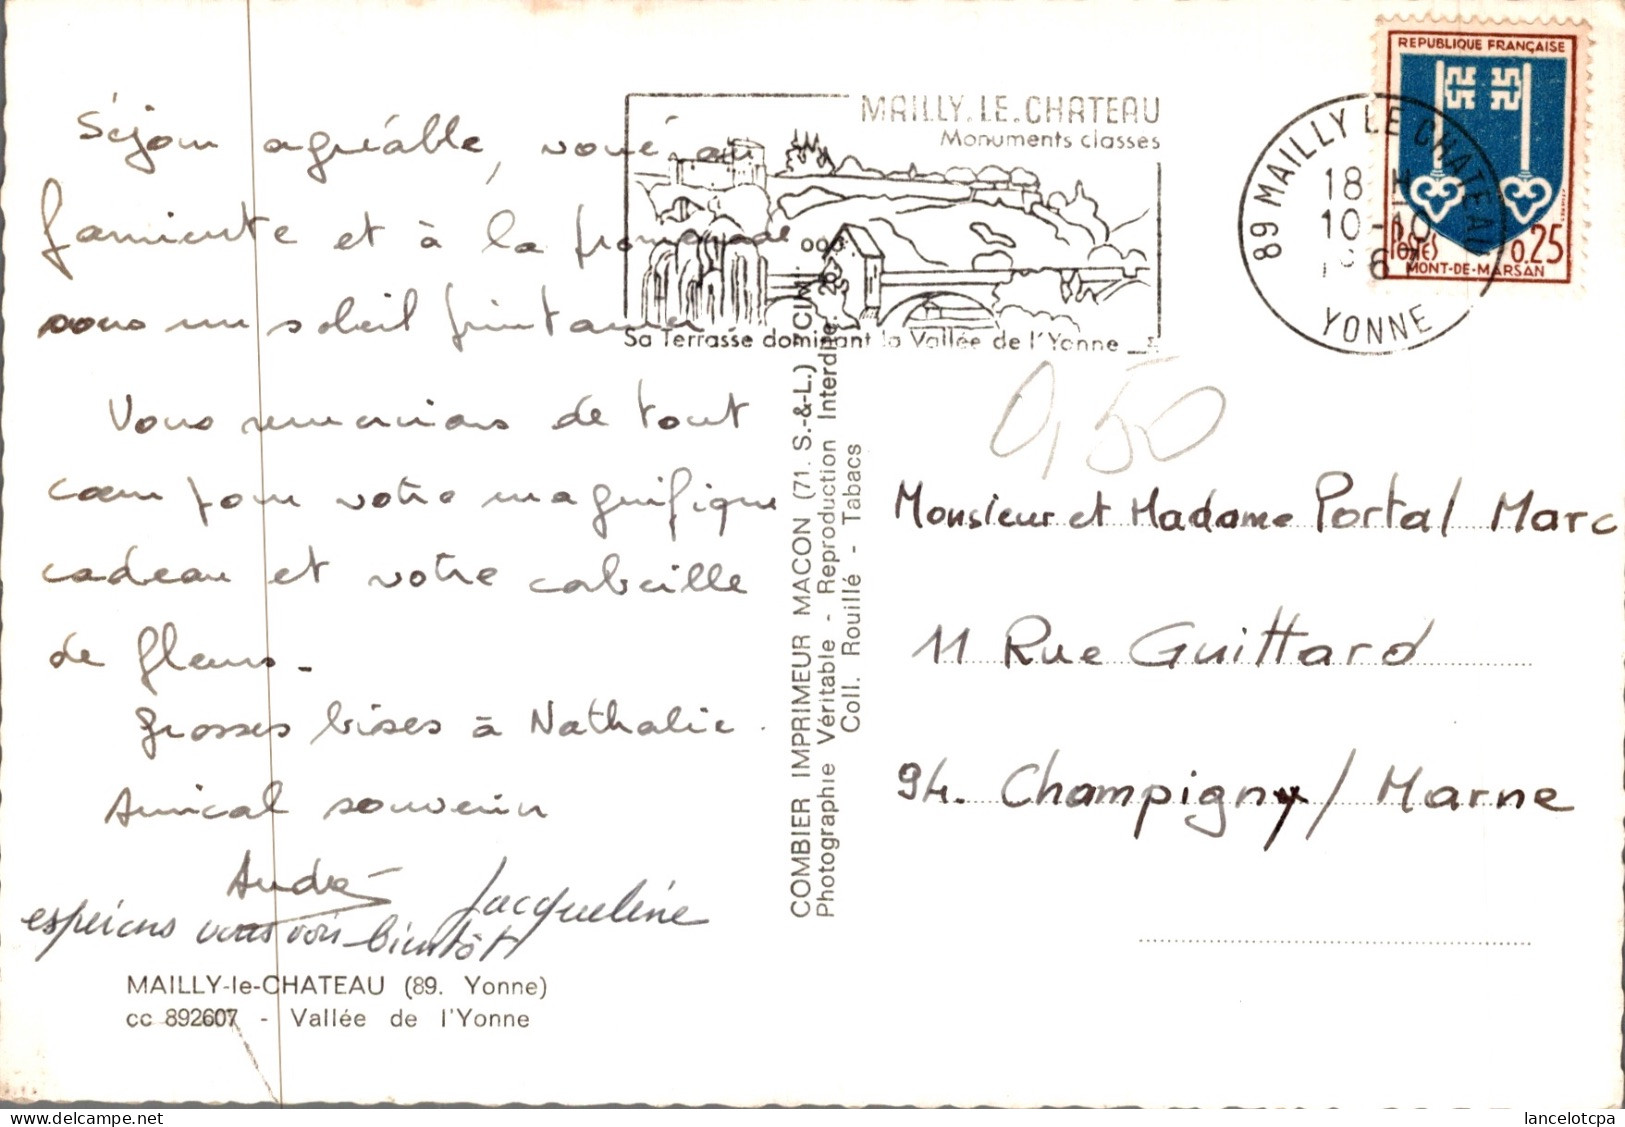 Séjour agréable, voué au
farniente et à la promenade
sous un soleil printanier
Vous remercions de tout
cœur pour votre magnifique
cadeau et votre corbeille
de fleurs.
Grosses bises à Nathalie.
Amical souvenir
André
Jacqueline
espérions vous voir bientôt
MAILLY-le-CHATEAU (89. Yonne)
cc 892607 - Vallée de l'Yonne
MAILLY.LE.CHATEAU
Monuments classés
Sa Terrasse dominant la Vallée de l'Yonne
COMBIER IMPRIMEUR MACON (71. S.-&-L.) "CIM"
Photographie Véritable - Reproduction Interdite
Coll. Rouillé - Tabacs
89 MAILLY LE CHATEAU
18 H
10-10
1967
YONNE
REPUBLIQUE FRANÇAISE
POSTES 0.25
MONT-DE-MARSAN
0,50
Monsieur et Madame Portal Marc
11 Rue Guittard
94. Champigny/Marne
lancelotcpa